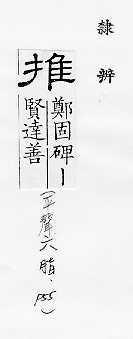 隸辨
推
鄭固碑｜
賢達善
(平聲六脂.P55)